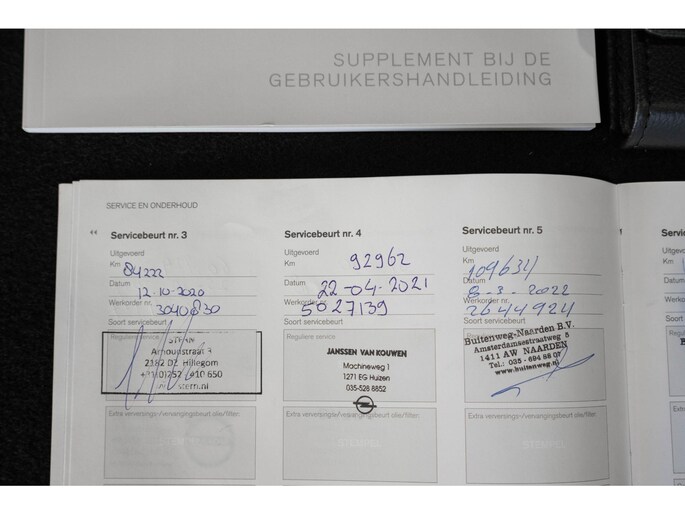 SUPPLEMENT BIJ DE
GEBRUIKERSHANDLEIDING
SERVICE EN ONDERHOUD
Servicebeurt nr. 3
Uitgevoerd
Km 84222
Datum 12-10-2020
Werkorder nr. 3040830
Soort servicebeurt
Reguliere service
STERN
Arnoudstraat
2182 DZ Hillegom
410 650
stern.nl
Extra verversings-/vervangingsbeurt olie/filter
Servicebeurt nr. 4
Uitgevoerd
Km 92962
Datum 22-04-2021
Werkorder nr. 5027139
Soort servicebeurt
Reguliere service
JANSSEN VAN KOUWEN
Machineweg 1
1271 EG Huizen
035-528 6652
Extra verversings-/vervangingsbeurt olie/filter
STEMPEL
Servicebeurt nr. 5
Uitgevoerd
Km 109634
Datum 8-3-2022
Werkorder nr. 2644924
Soort servicebeurt
Reguliere service
Buitenweg-Naarden B.V.
Amsterdamsestraatweg 5
1411 AW NAARDEN
Tel.: 035 - 694 88 07
www.buitenweg.nl
Extra verversings-/vervangingsbeurt olie/filter
STEMPEL